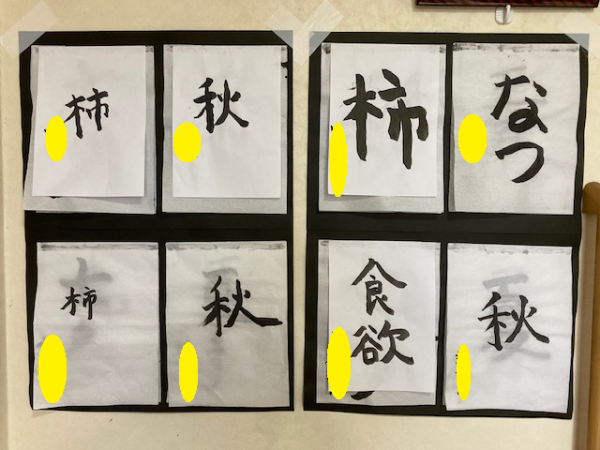 柿
秋
柿
なつ
柿
秋
食欲
秋